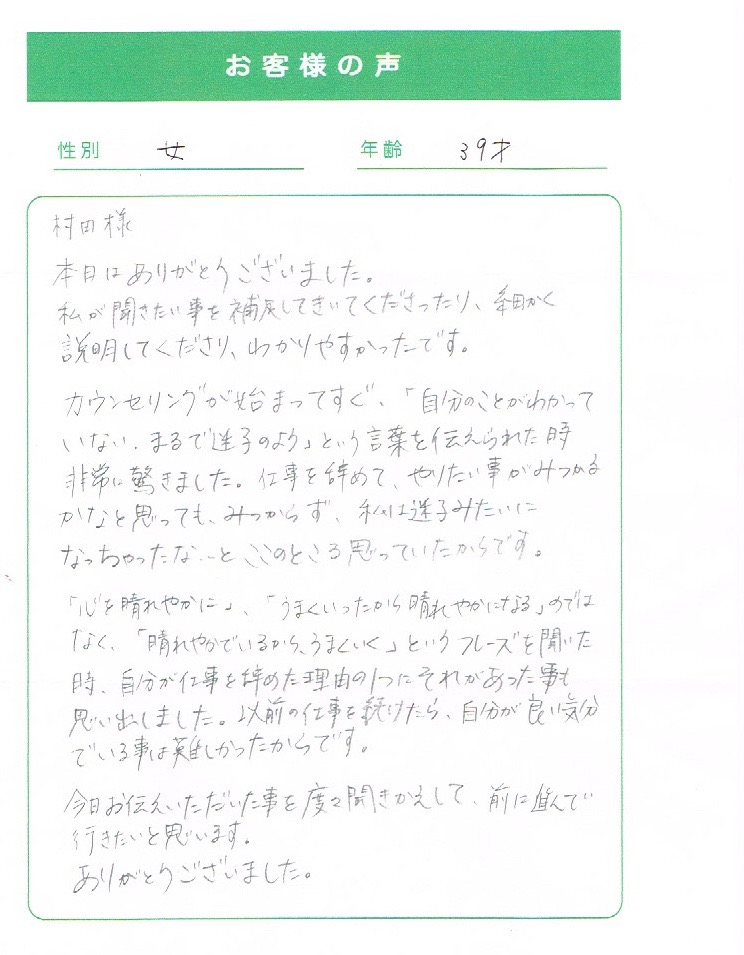 お客様の声
性別 女 年齢 39才
村田様
本日はありがとうございました。
私が聞きたい事を補足してきいてくださったり、細かく
説明してくださり、わかりやすかったです。
カウンセリングが始まってすぐ、「自分のことがわかって
いない、まるで迷子のよう」という言葉を伝えられた時
非常に驚きました。仕事を辞めて、やりたい事がみつかる
かなと思っても、みつからず、私は迷子みたいに
なっちゃったな…とここのところ思っていたからです。
「心を晴れやかに」、「うまくいったから晴れやかになる」のでは
なく、「晴れやかでいるから、うまくいく」というフレーズを聞いた
時、自分が仕事を辞めた理由の1つにそれがあった事も
思い出しました。以前の仕事を続けたら、自分が良い気分
でいる事は難しかったからです。
今日お伝えいただいた事を度々聞きかえして、前に進んで
行きたいと思います。
ありがとうございました。